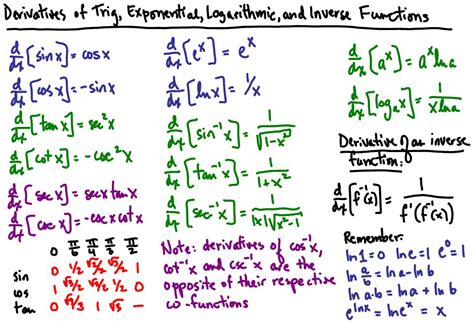 Derivatives of Trig, Exponential, Logarithmic, and Inverse Functions
d/dx [sin x] = cos x
d/dx [cos x] = -sin x
d/dx [tan x] = sec²x
d/dx [cot x] = -csc²x
d/dx [sec x] = sec x tan x
d/dx [csc x] = -csc x cot x
0 π/6 π/4 π/3 π/2
sin 0 1/2 √2/2 √3/2 1
cos 1 √3/2 √2/2 1/2 0
tan 0 √3/3 1 √3 —
d/dx [eˣ] = eˣ
d/dx [ln x] = 1/x
d/dx [sin⁻¹x] = 1/√(1-x²)
d/dx [tan⁻¹x] = 1/(1+x²)
d/dx [sec⁻¹x] = 1/(|x|√(x²-1))
Note: derivatives of cos⁻¹x,
cot⁻¹x and csc⁻¹x are the
opposite of their respective
co-functions
d/dx [aˣ] = aˣ ln a
d/dx [logₐx] = 1/(x ln a)
Derivative of an inverse
function:
d/dx [f⁻¹(x)] = 1/f'(f⁻¹(x))
Remember:
ln 1 = 0 ln e = 1 e⁰ = 1
ln a/b = ln a - ln b
ln a·b = ln a + ln b
e^(ln x) = ln eˣ = x